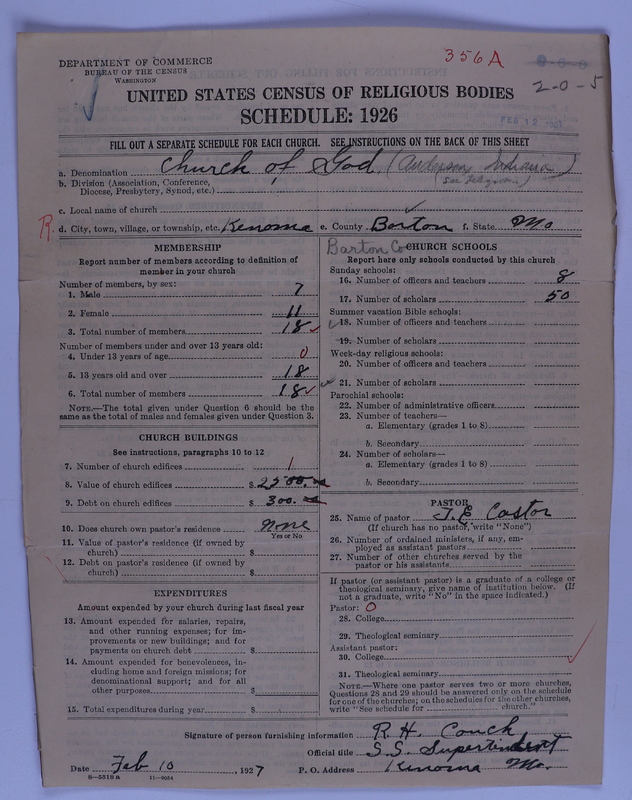 DEPARTMENT OF COMMERCE
BUREAU OF THE CENSUS
WASHINGTON
356A
2-0-5
UNITED STATES CENSUS OF RELIGIOUS BODIES
SCHEDULE: 1926
FEB 12 1927
FILL OUT A SEPARATE SCHEDULE FOR EACH CHURCH. SEE INSTRUCTIONS ON THE BACK OF THIS SHEET
a. Denomination Church of God (Anderson Indiana)
b. Division (Association, Conference,
Diocese, Presbytery, Synod, etc.)
c. Local name of church
R. d. City, town, village, or township, etc. Kenoma e. County Barton f. State Mo
Barton Co
MEMBERSHIP
Report number of members according to definition of
member in your church
Number of members, by sex:
1. Male 7
2. Female 11
3. Total number of members 18
Number of members under and over 13 years old:
4. Under 13 years of age 0
5. 13 years old and over 18
6. Total number of members 18
NOTE.—The total given under Question 6 should be
same as the total of males and females given under Question 3.
CHURCH BUILDINGS
See instructions, paragraphs 10 to 12
7. Number of church edifices 1
8. Value of church edifices $ 2500.00
9. Debt on church edifices $ 300.00
10. Does church own pastor's residence None
Yes or No
11. Value of pastor's residence (if owned by
church) $
12. Debt on pastor's residence (if owned by
church) $
EXPENDITURES
Amount expended by your church during last fiscal year
13. Amount expended for salaries, repairs,
and other running expenses; for im-
provements or new buildings; and for
payments on church debt $
14. Amount expended for benevolences, in-
cluding home and foreign missions; for
denominational support; and for all
other purposes $
15. Total expenditures during year $
CHURCH SCHOOLS
Report here only schools conducted by this church
Sunday schools:
16. Number of officers and teachers 8
17. Number of scholars 50
Summer vacation Bible schools:
18. Number of officers and teachers
19. Number of scholars
Week-day religious schools:
20. Number of officers and teachers
21. Number of scholars
Parochial schools:
22. Number of administrative officers
23. Number of teachers—
a. Elementary (grades 1 to 8)
b. Secondary
24. Number of scholars—
a. Elementary (grades 1 to 8)
b. Secondary
PASTOR
25. Name of pastor J. E. Castor
(If church has no pastor, write "None")
26. Number of ordained ministers, if any, em-
ployed as assistant pastors
27. Number of other churches served by the
pastor or his assistants
If pastor (or assistant pastor) is a graduate of a college or
theological seminary, give name of institution below. (If
not a graduate, write "No" in the space indicated.)
Pastor: 0
28. College
29. Theological seminary
Assistant pastor:
30. College
31. Theological seminary
NOTE.—Where one pastor serves two or more churches,
Questions 28 and 29 should be answered only on the schedule
for one of the churches; on the schedules for the other churches,
write "See schedule for church."
Signature of person furnishing information R. H. Couch
Official title S.S. Supertindent
Date Feb 10, 1927 P. O. Address Kenoma Mo.
8—5518a 11—9034